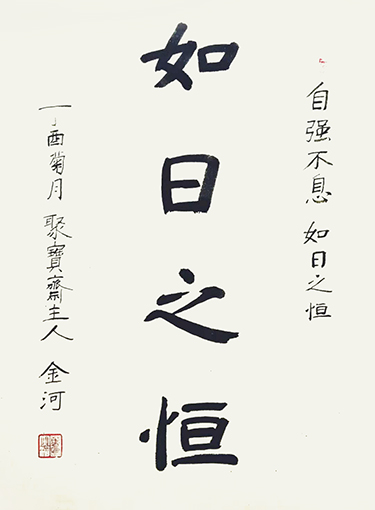 自强不息 如日之恒
如日之恒
丁酉菊月 聚寶齋主人 金河